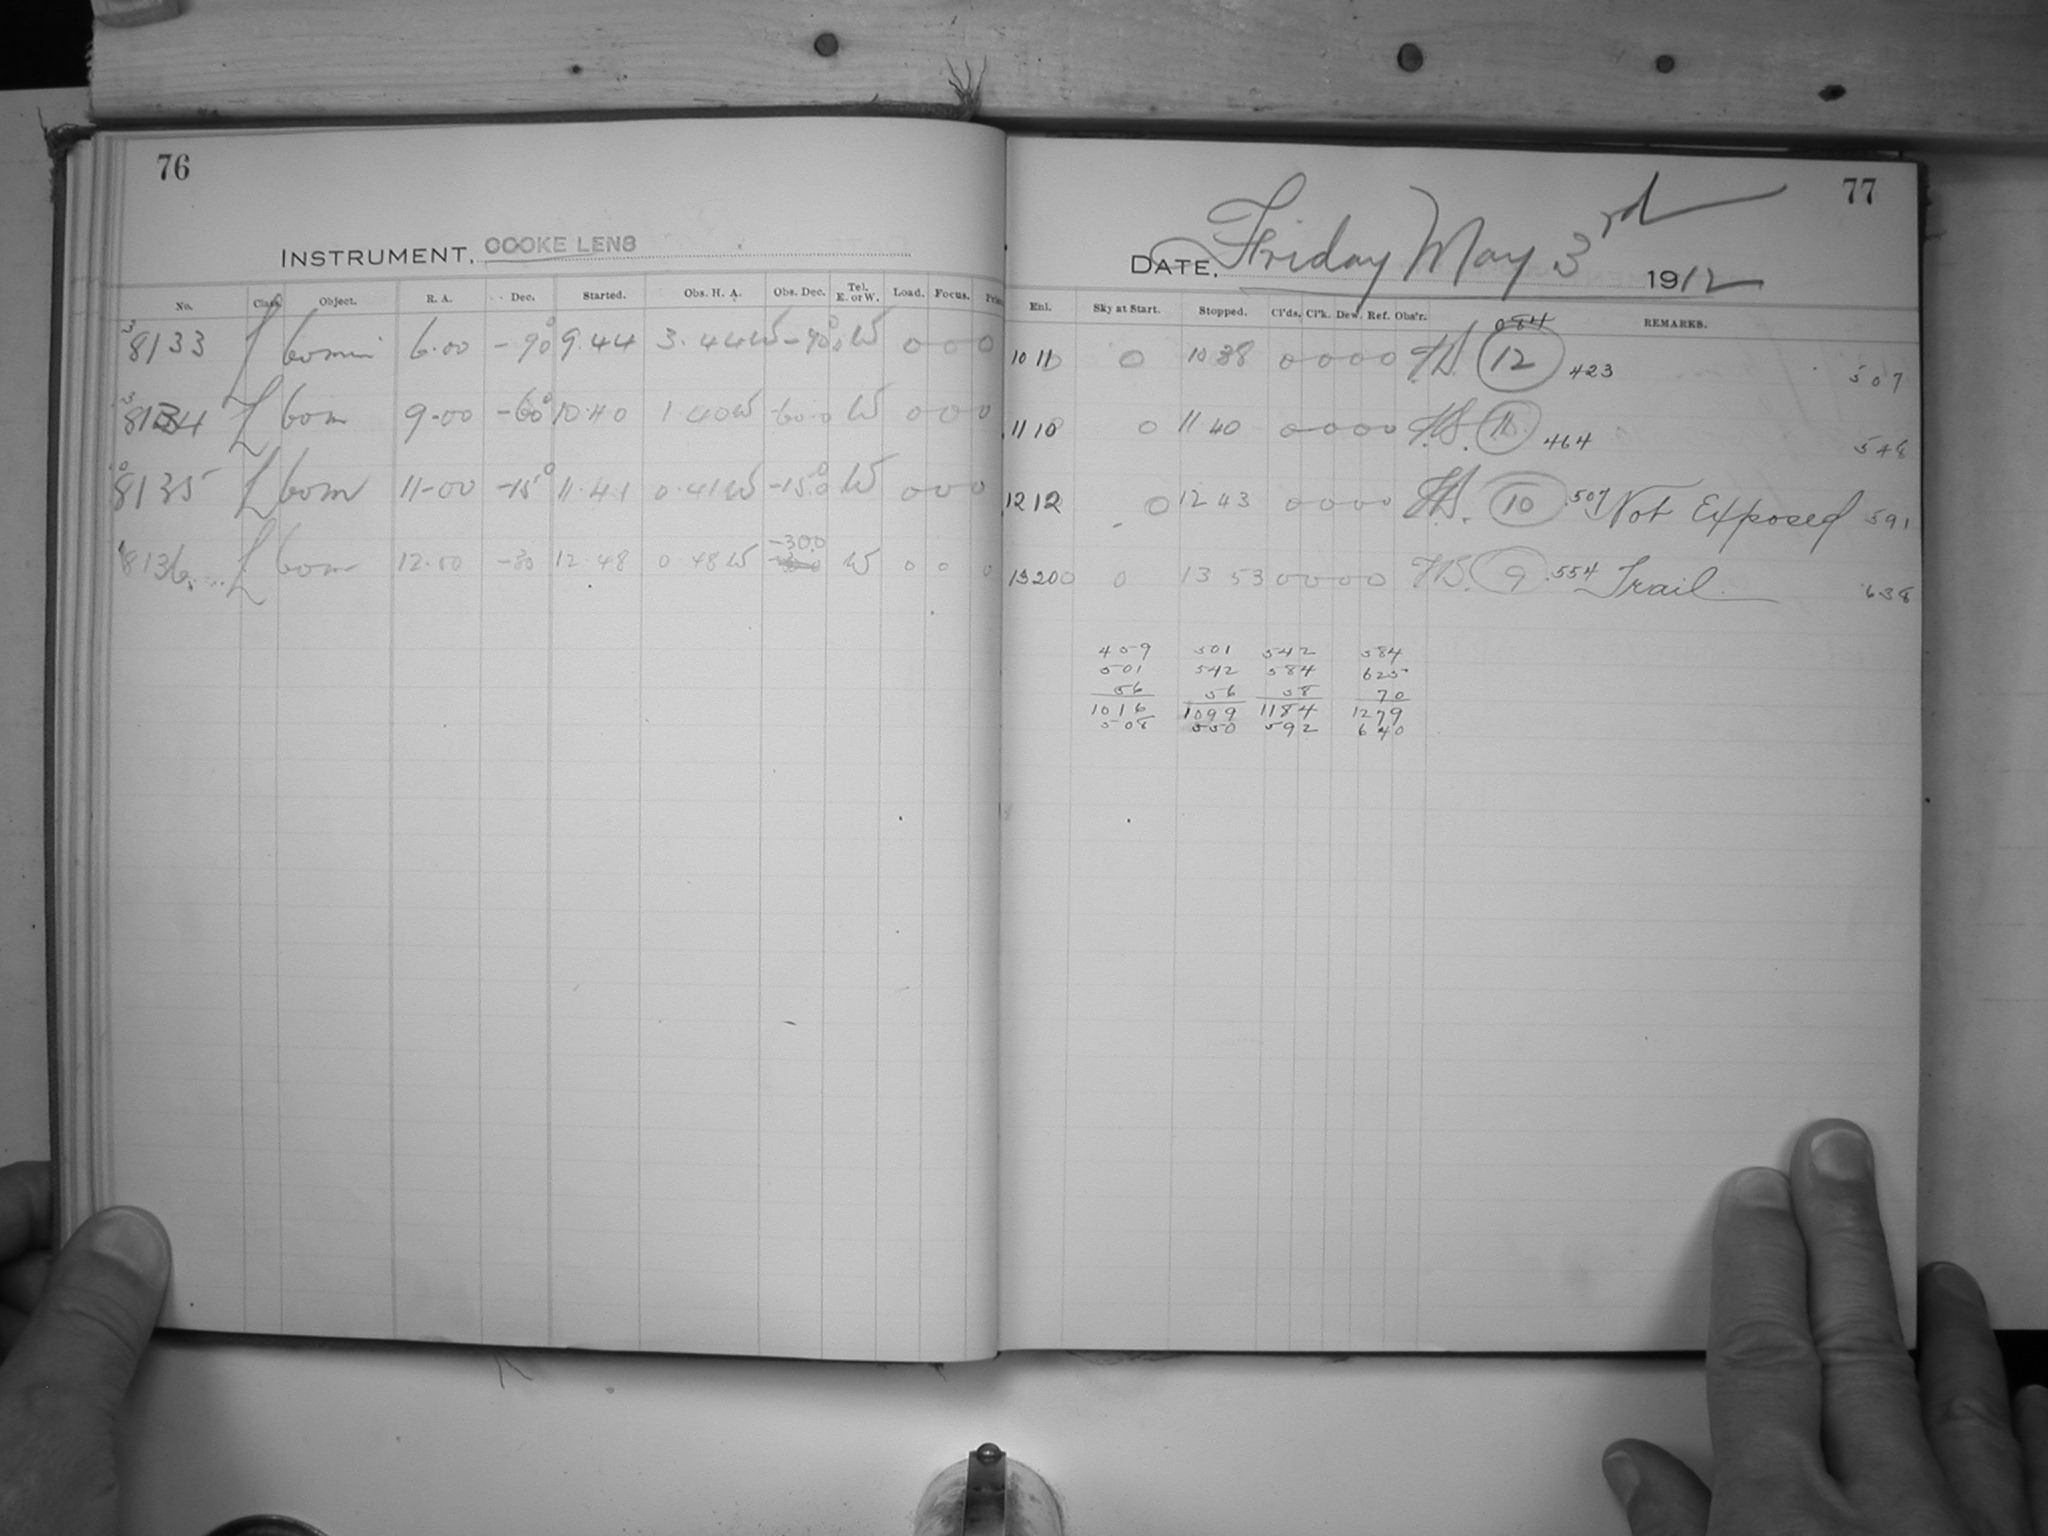 76
INSTRUMENT, COOKE LENS
No. Class Object. R. A. Dec. Started. Obs. H. A. Obs. Dec. Tel. E. or W. Load. Focus.
3 8133 L 60 min 6.00 -90° 9.44 3.44 W -90°.0 W 0 0 0
3 8134 L 60 m 9.00 -60° 10.40 1.40 W -60.0 W 0 0 0
0 8135 L 60 m 11-00 -15° 11.41 0.41 W -15°.0 W 0 0 0
8136 L 60 m 12.00 -30 12.48 0.48 W -30.0 W 0 0 0
77
DATE, Friday May 3rd 1912
Enl. Sky at Start. Stopped. Cl'ds. Cl'k. Dew. Ref. Obs'r. REMARKS.
084
10 11 0 10 38 0 0 0 0 12 423 507
11 10 0 11 40 0 0 0 0 11 464 548
12 12 0 12 43 0 0 0 0 10 .507 Not Exposed 591
13 20 0 0 13 53 0 0 0 0 9 .554 Trail 638
459 501 542 584
501 542 584 625
56 56 58 70
1016 1099 1184 1279
508 550 592 640